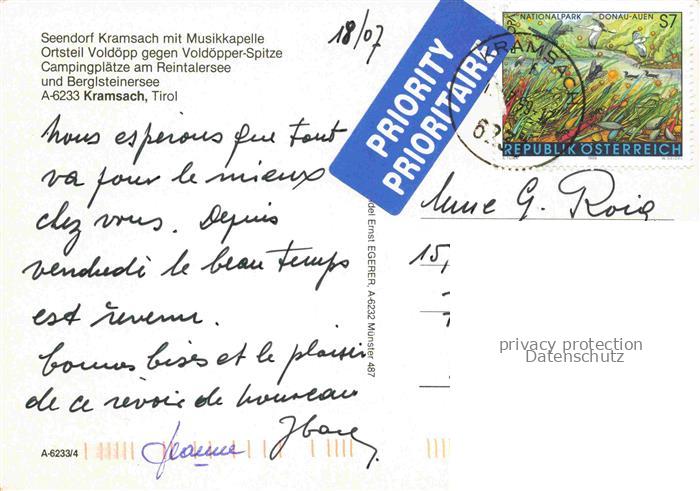 Seendorf Kramsach mit Musikkapelle
Ortsteil Voldöpp gegen Voldöpper-Spitze
Campingplätze am Reintalersee
und Berglsteinersee
A-6233 Kramsach, Tirol
18/07
nous espérons que tout
va pour le mieux
chez vous. Depuis
vendredi le beau temps
est revenu.
bonnes bises et le plaisir
de ce revoir de nouveau
Jeanne
A-6233/4
del Ernst EGERER, A-6232 Münster 487
PRIORITY
PRIORITAIRE
NATIONALPARK DONAU-AUEN S7
REPUBLIK ÖSTERREICH
KRAMSA
623
Mme G. Roig
15,
privacy protection
Datenschutz